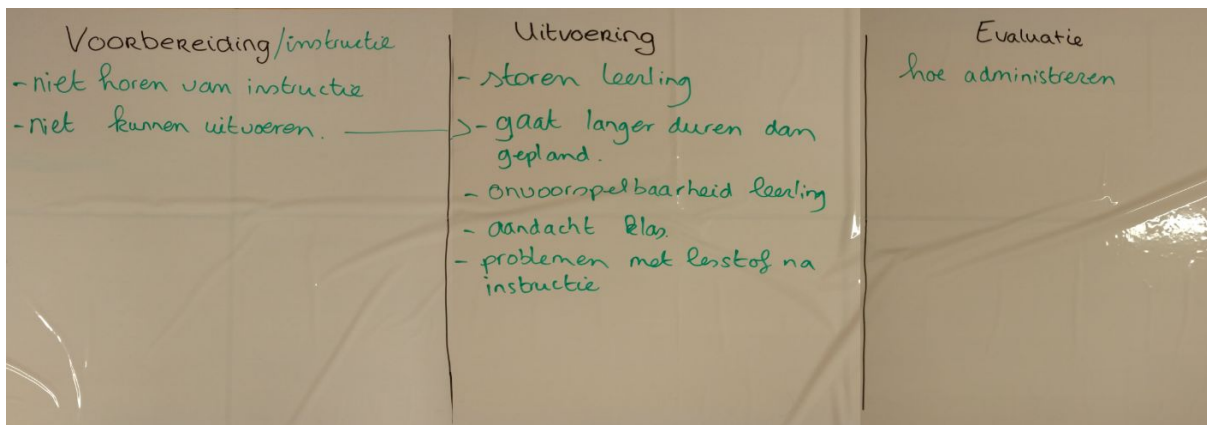 Voorbereiding/instructie
- niet horen van instructie
- niet kunnen uitvoeren.
Uitvoering
- storen leerling
- gaat langer duren dan
gepland.
- onvoorspelbaarheid leerling
- aandacht klas.
- problemen met lesstof na
instructie
Evaluatie
hoe administreren